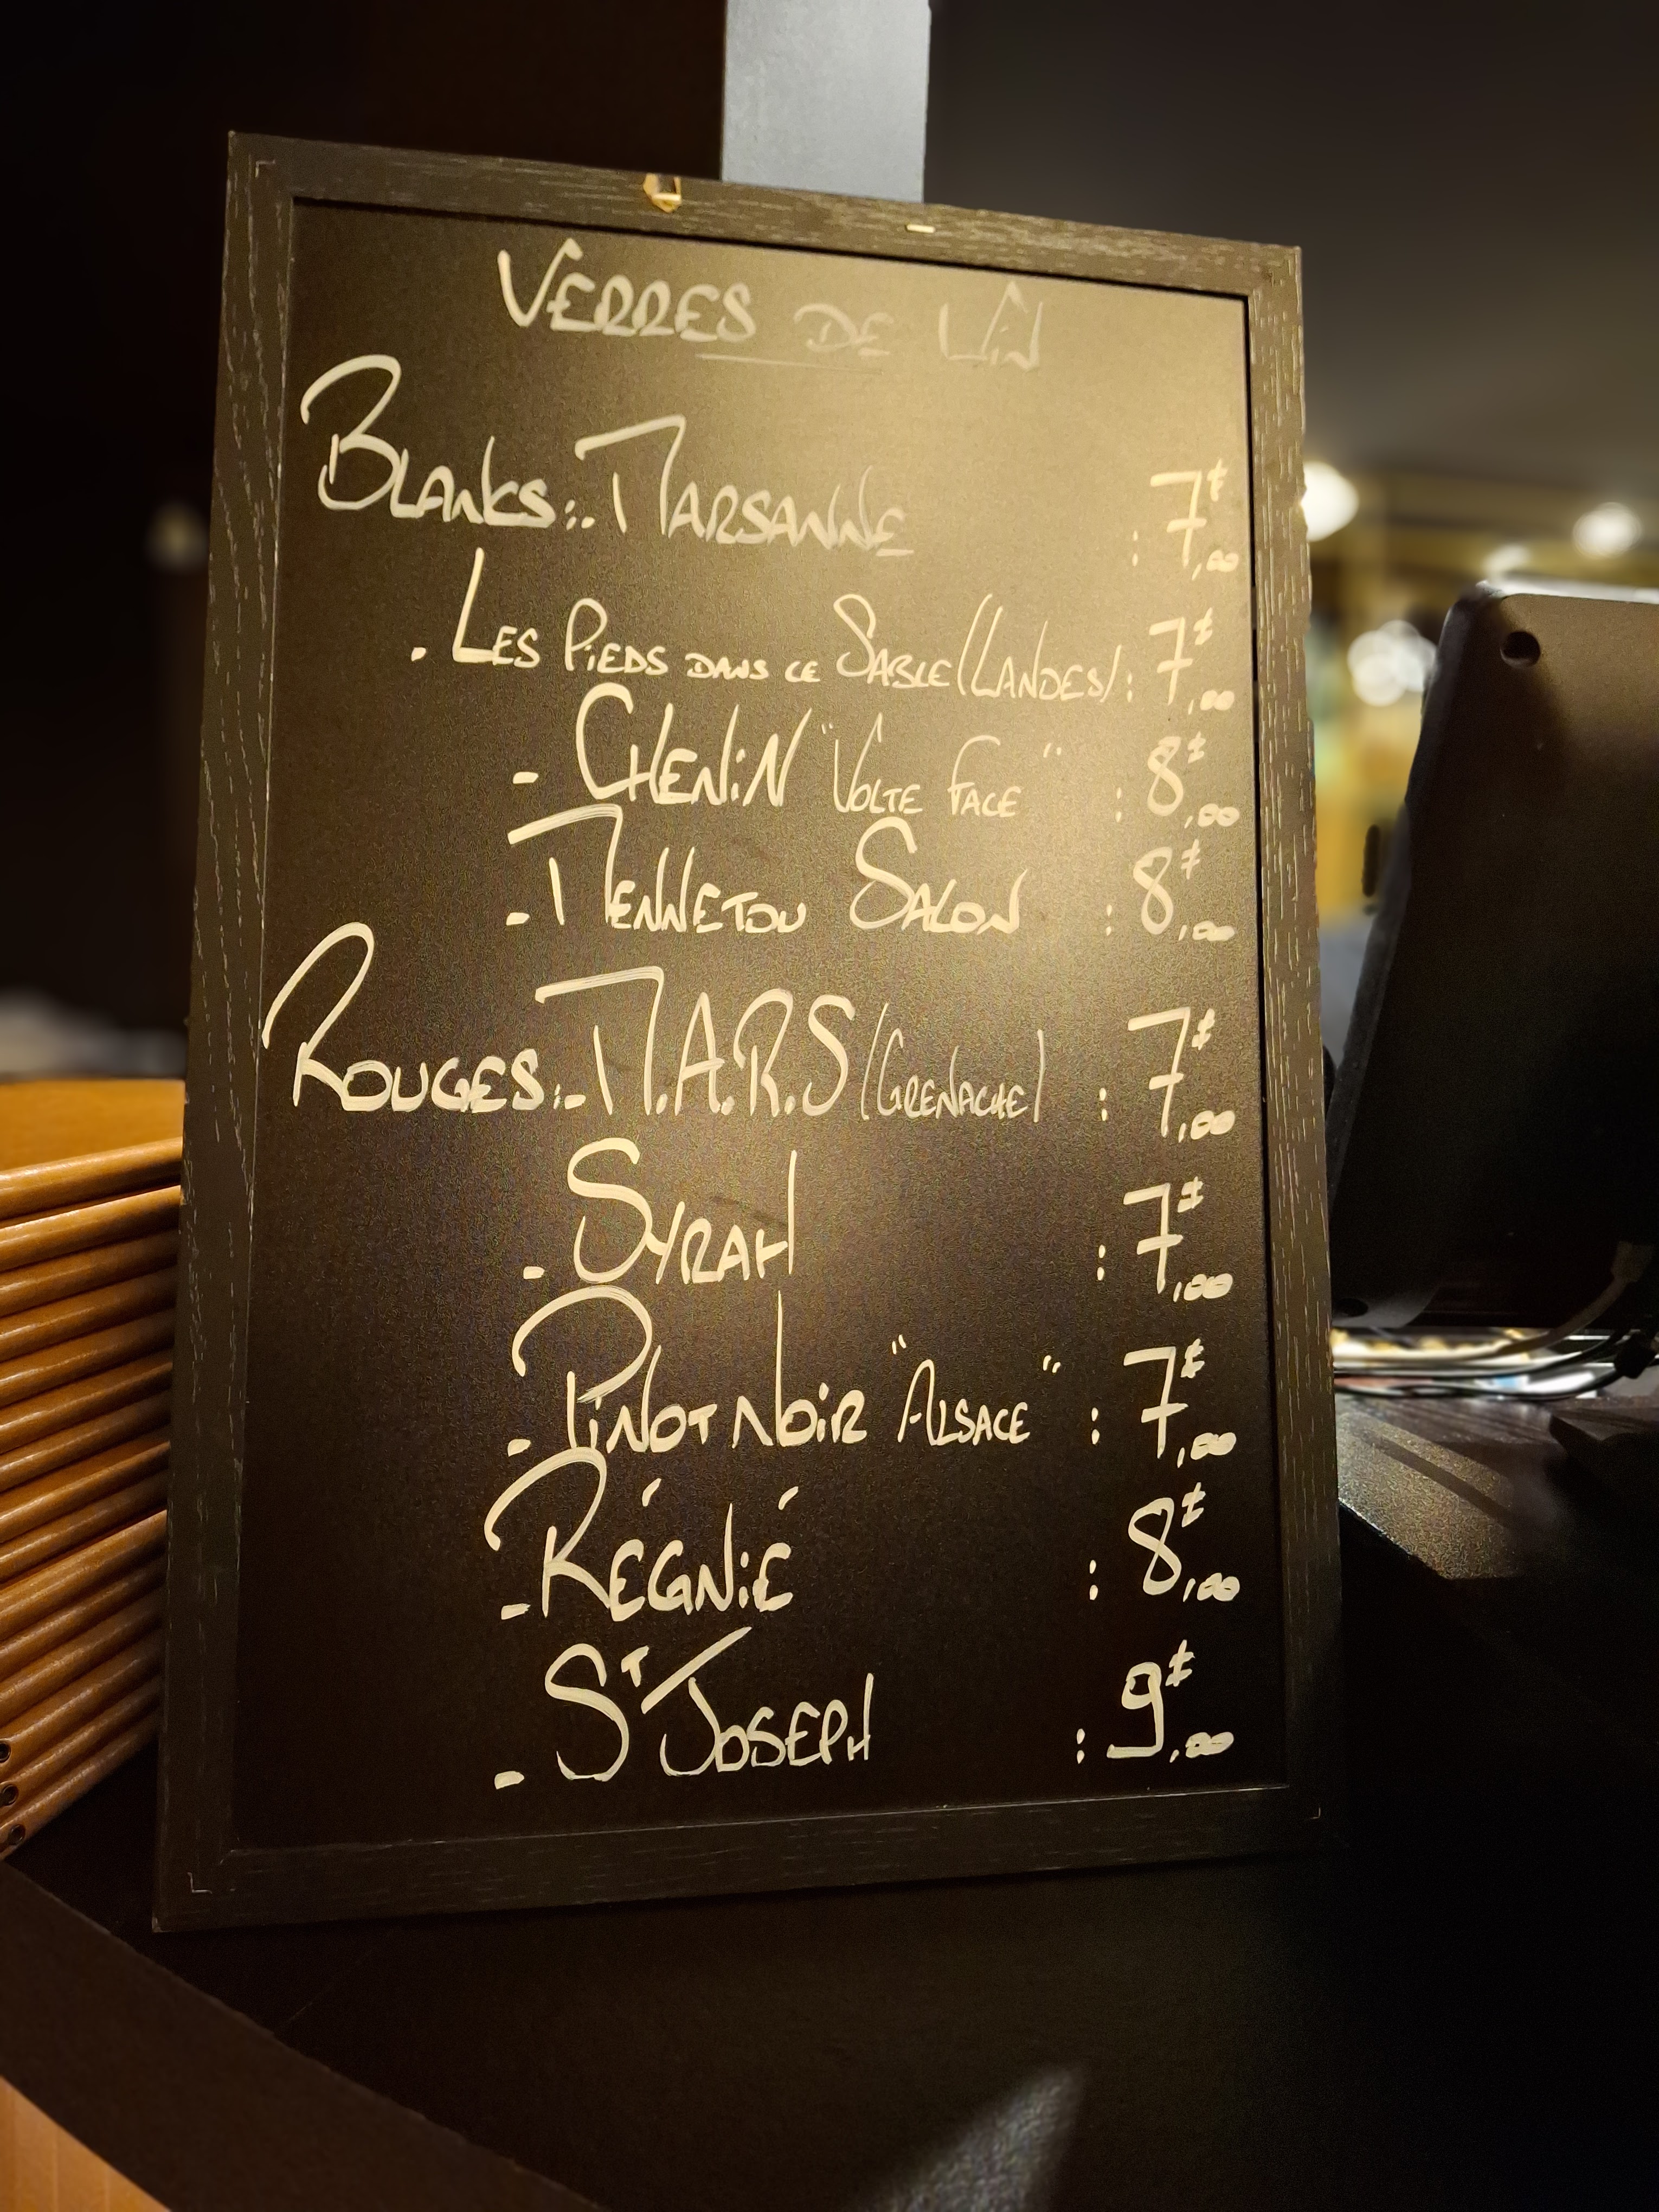 VERRES DE VIN
BLANCS: - MARSANNE : 7€,00
- LES PIEDS DANS LE SABLE (LANDES) : 7€,00
- CHENIN "VOLTE FACE" : 8€,00
- MENNETOU SALON : 8€,00
ROUGES: - M.A.R.S (GRENACHE) : 7€,00
- SYRAH : 7€,00
- PINOT NOIR "ALSACE" : 7€,00
- RÉGNIÉ : 8€,00
- ST JOSEPH : 9€,00